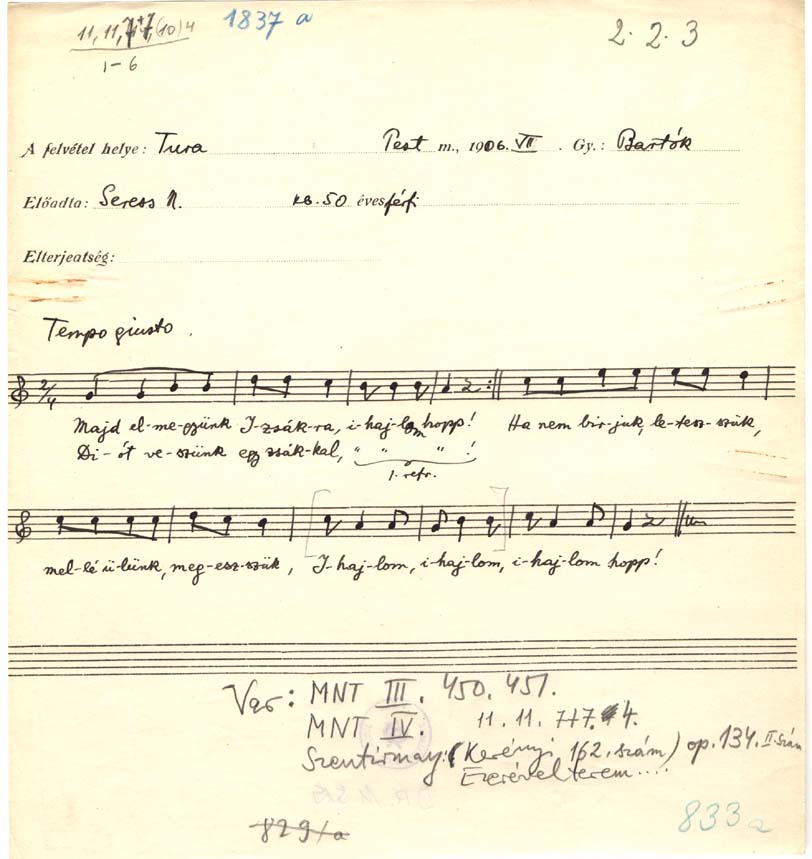 11, 11, 7+7, (10) 4 1837 a 2. 2. 3
1-6
A felvétel helye: Tura Pest m., 1906. VII. Gy.: Bartók
Előadta: Seress N. kb. 50 éves férfi
Elterjeatség:
Tempo giusto.
2/4
Majd el-me-gyünk I-zsák-ra, i-haj-lom hopp! Ha nem bir-juk, le-tesz-szük,
Di-ót ve-szünk egy zsák-kal, " " " !
1. refr.
mel-lé ü-lünk, meg-esz-szük, I-haj-lom, i-haj-lom, i-haj-lom hopp!
Var: MNT III. 450. 451.
MNT IV. 11. 11. 7+7. 4.
Szentirmay: (Kerényi 162. szám) op. 134. II. szám
Ezerével terem....
829/a 833 a